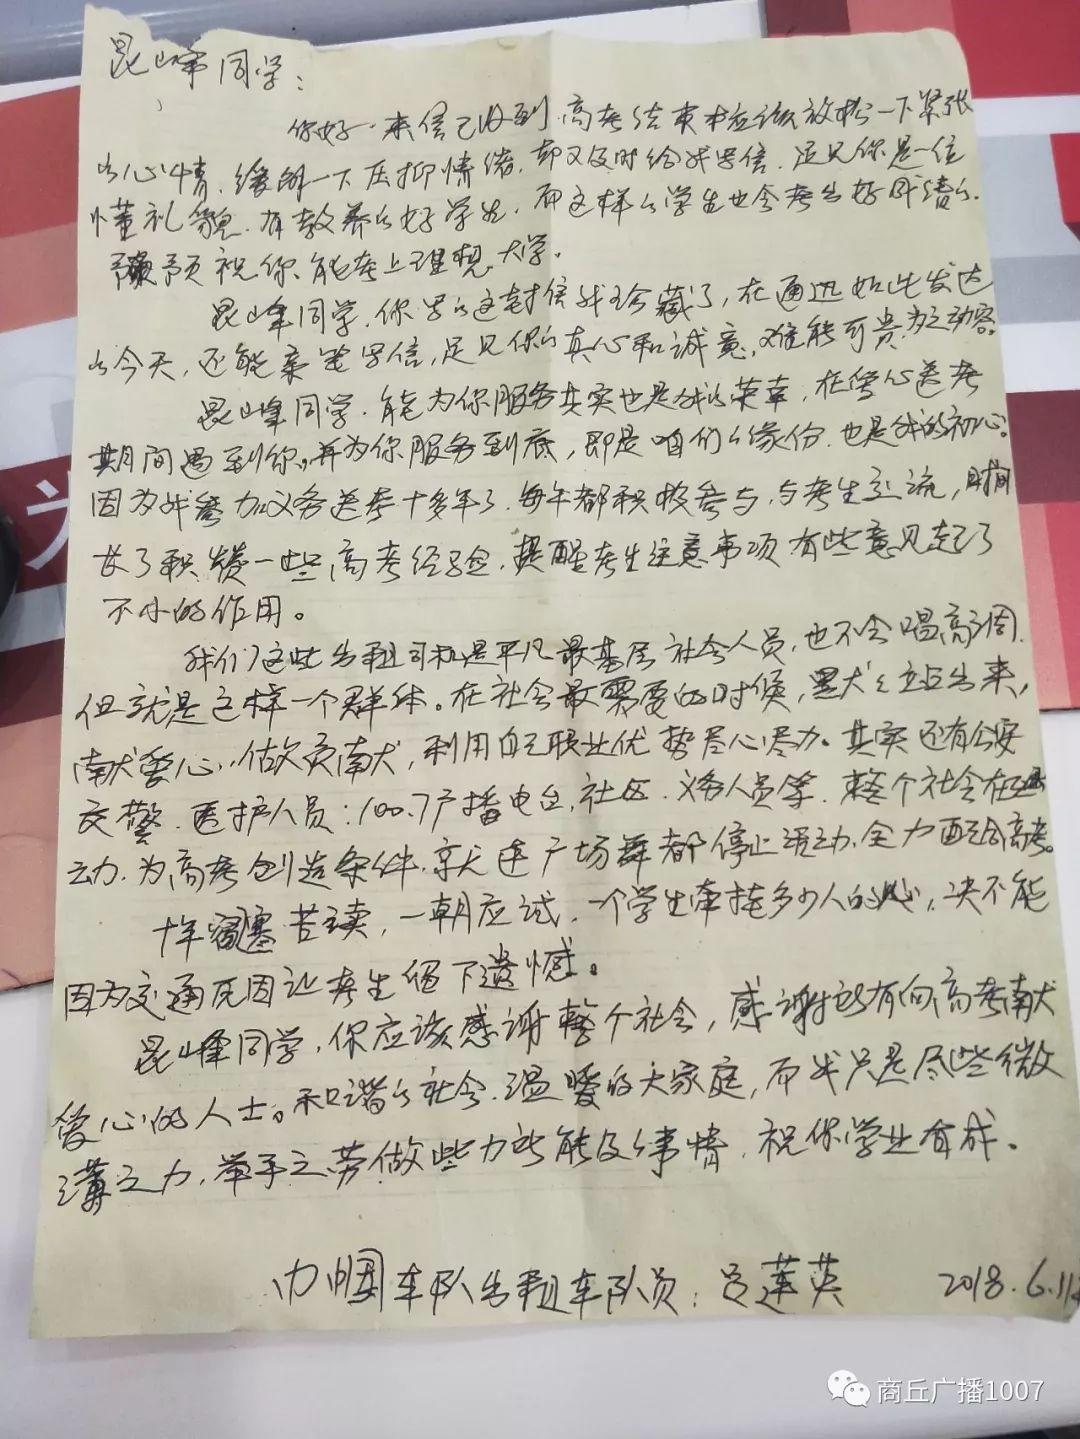 昆峰同学：
你好。来信已收到，高考结束本应该放松一下紧张
的心情，缓解一下压抑情绪，却又及时给我写信，足见你是一位
懂礼貌，有教养的好学生，而这样的学生也会考出好成绩的。
预祝你能考上理想大学。
昆峰同学，你写的这封信我珍藏了，在通迅如此发达
的今天，还能亲笔写信，足见你的真心和诚意，难能可贵，为之动容。
昆峰同学，能为你服务其实也是我的荣幸，在爱心送考
期间遇到你。并为你服务到底，即是咱们的缘份，也是我的初心。
因为我参加义务送考十多年了，每年都积极参与，与考生交流，时间
长了积攒一些高考经验，提醒考生注意事项有些意见起了
不小的作用。
我们这些出租司机是平凡最基层社会人员，也不会唱高调，
但就是这样一个群体。在社会最需要的时候，默默站出来，
献爱心，做贡献，利用自己职业优势尽心尽力。其实还有公安
交警，医护人员；100.7广播电台，社区，义务人员等，整个社会在
动，为高考创造条件，就连广场舞都停止活动，全力配合高考。
十年寒窗苦读，一朝应试，一个学生牵挂多少人的心，决不能
因为交通原因让考生留下遗憾。
昆峰同学，你应该感谢整个社会，感谢所有向高考献
爱心的人士。和谐的社会，温暖的大家庭，而我只是尽些微
薄之力，举手之劳做些力所能及的事情，祝你学业有成。
巾帼车队出租车队员：吕莲英 2018.6.11
商丘广播1007